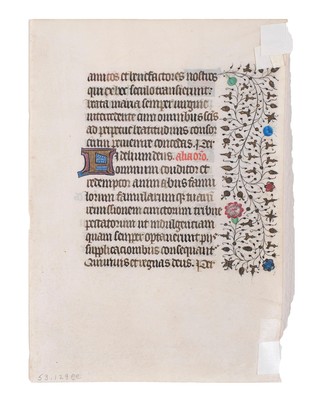 amicos et benefactores nostros
qui ex hoc seculo transierunt
beata maria semper virgine
intercedente cum omnibus scis
ad perpetue beatitudinis consor
cium pervenire concedas. Per
Fidelium deus. alia oro.
omnium conditor et
redemptor animabus famu
lorum famularumque tuarum
remissionem cunctorum tribue
peccatorum ut indulgenciam
quam semper optaverunt piis
supplicationibus consequant
Qui vivis et regnas deus. Per